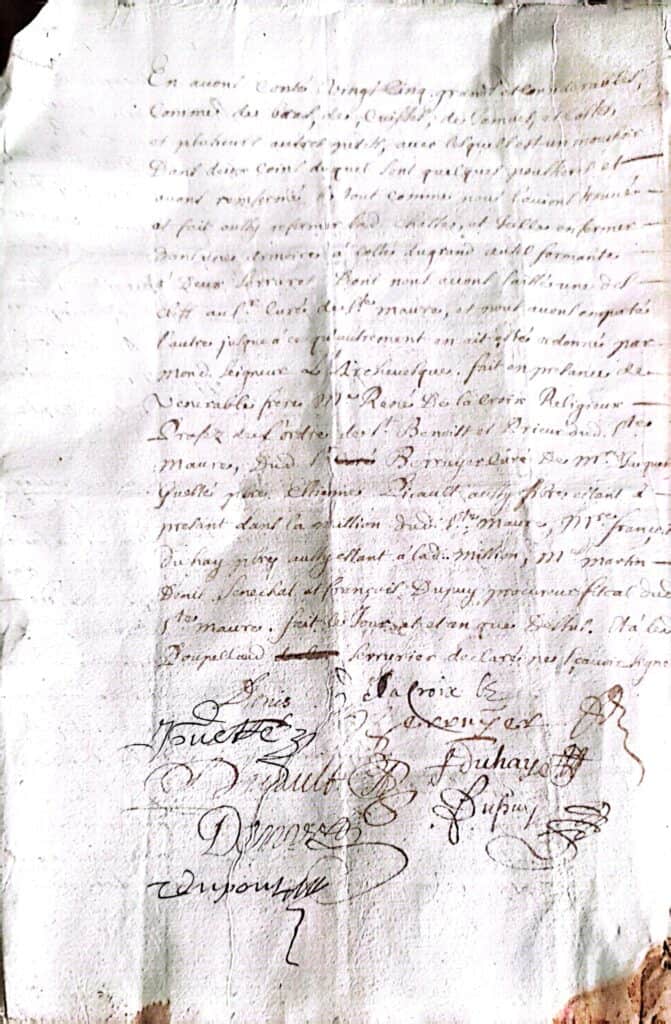 En avons Conté Vingt Cinq, grands et Considerables,
Comme des bras, des Cuisses, de et Costes,
et plusieurs autres petits, avec lesquels est un mouchoir
Dans deux Coins duquel sont quelques poussieres et
avons renfermé le tout comme nous l'avions trouvé
et fait aussy refermer lad. Chasse, et Icelle enfermer
dans une armoire à Costé du grand autel fermante
à Deux serrures Dont nous avons laissé une des
Cleff au Sr. Curé de Ste Maure, et nous avons emporté
l'autre jusque à ce qu'autrement en ait esté ordonné par
mond. seigneur L'Archevesque. fait en presence de
Venerable frere Mre René De la Croix Religieux
Profez de l'ordre de St. Benoist et Prieur dud. Ste
Maure, dud. Sr Berruyer Curé De Mre Jacques
Guette pbre, Estienne Picault, aussy pbre estant à
present dans la Mission dud. Ste Maure, Mre françois
duhay pbre aussy estant à lad. Mission, Me Martin
Denis Senechal et françois Dupuy procureur fiscal dud.
Ste Maure. fait les Jour et an que Dessus. Et à led.
serrurier declaré ne sçavoir signer
Denis DelaCroix
Berruyer
Guette
Picault fDuhay
Dupuy
Dupont